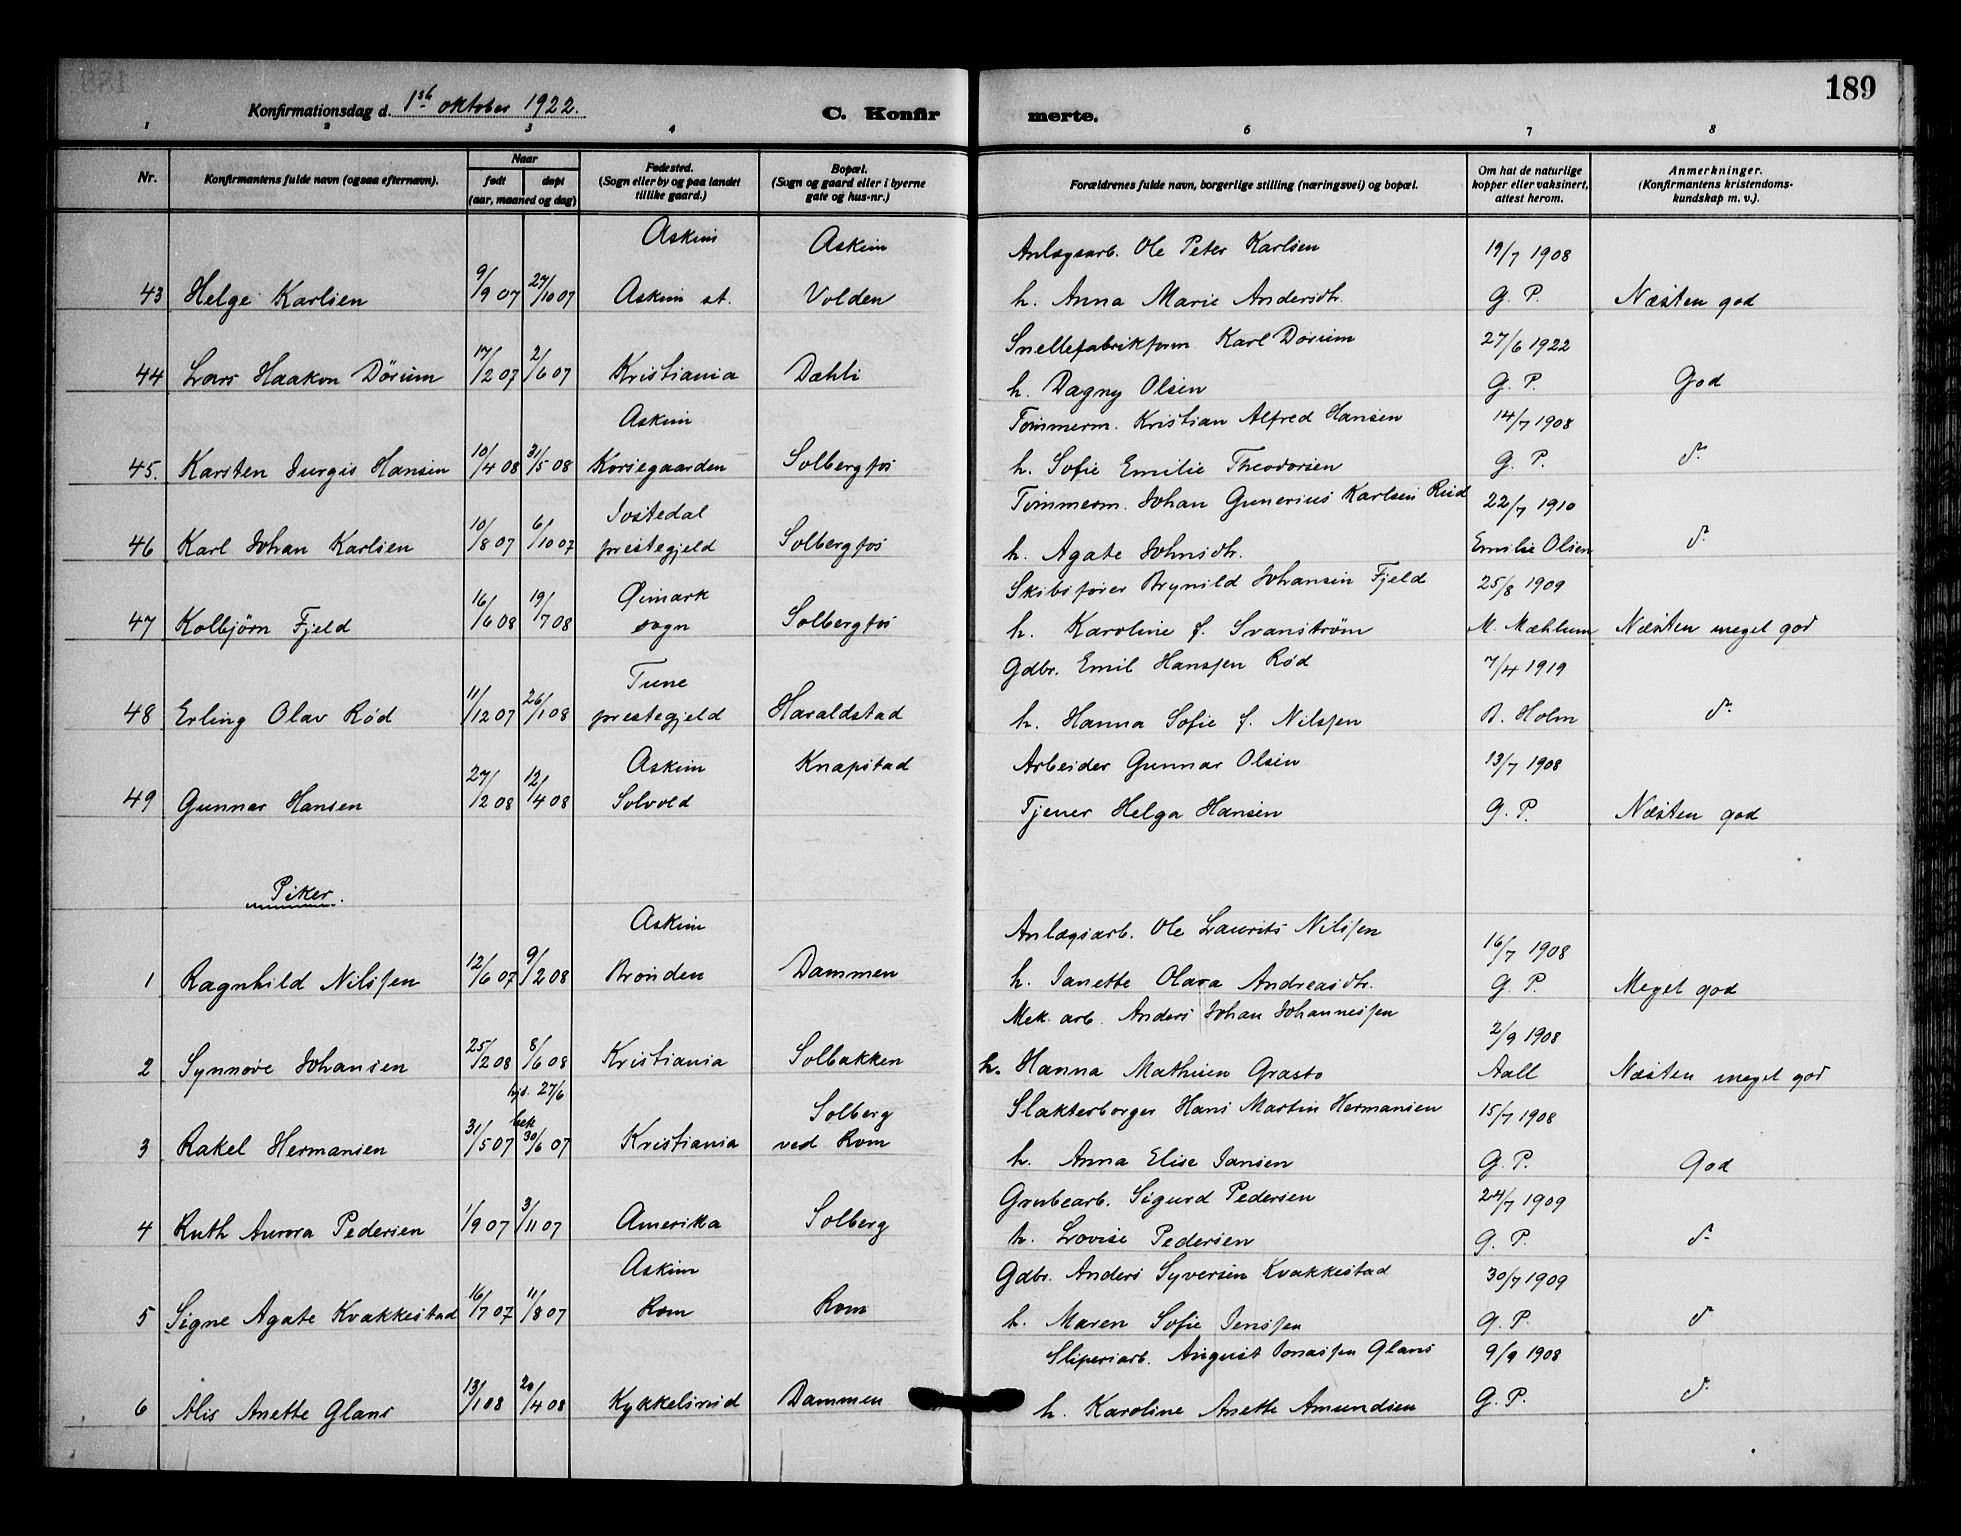 189
Konfirmationsdag d. 1ste oktober 1922. C. Konfir merte.
1 2 3 4 6 7 8
Nr. Konfirmantens fulde navn (ogsaa efternavn). Naar født døpt (aar, maaned og dag) Fødested. (Sogn eller by og paa landet tillike gaard.) Bopæl. (Sogn og gaard eller i byerne gate og hus-nr.) Forældrenes fulde navn, borgerlige stilling (næringsvei) og bopæl. Om hat de naturlige kopper eller vaksinert, attest herom. Anmerkninger. (Konfirmantens kristendoms- kundskap m. v.).
Askim Askim Anlægsarb. Ole Peter Karlsen 19/7 1908
43 Helge Karlsen 9/9 07 27/10 07 Askim st. Volden h. Anna Marie Andersdtr. G. P. Næsten god
Snellefabrikform Karl Dørum 27/6 1922
44 Lars Haakon Dörum 17/2 07 2/6 07 Kristiania Dæhli h. Dagny Olsen G. P. God
Askim Tømmerm. Kristian Alfred Hansen 14/7 1908
45. Karsten Jurgis Hansen 10/4 08 31/5 08 Korsegaarden Solbergfos h. Sofie Emilie Theodorsen G. P. d-
Jostedal Tømmerm. Johan Gunerius Karlsen Rud 22/7 1910
46 Karl Johan Karlsen 10/8 07 6/10 07 prestegjeld Solbergfos h. Agate Johnsdtr. Emilie Olsen d-
Øimark Skibsfører Brynild Johansen Fjeld 25/8 1909
47 Kolbjörn Fjeld 16/6 08 19/7 08 sogn Solbergfos h. Karoline f. Svanstrøm M. Mæhlum Næsten meget god
Tune Gdbr. Emil Hanssen Rød 7/4 1919
48 Erling Olav Rød 11/12 07 26/1 08 prestegjeld Haraldstad h. Hanna Sofie f. Nilssen B. Holm d-
Askim Knapstad Arbeider Gunnar Olsen 13/7 1908
49 Gunnar Hansen 27/2 08 12/4 08 Solvold Tjener Helga Hansen G. P. Næsten god
Piker.
Askim Anlægsarb. Ole Laurits Nilssen 16/7 1908
1 Ragnhild Nilssen 12/6 07 9/2 08 Brønden Dammen h. Janette Olava Andreasdtr. G. P. Meget god
Mek. arb. Anders Johan Johannessen 2/9 1908
2 Synnøve Johansen 25/2 08 8/6 08 Kristiania Solbakken h. Hanna Mathisen Grasto Aall Næsten meget god
hjd. 27/6 Solberg Slakterborger Hans Martin Hermansen 15/7 1908
3 Rakel Hermansen 31/5 07 bek 30/6 07 Kristiania ved Rom h. Anna Elise Jansen G. P. God
Grubearb. Sigurd Pedersen 24/7 1909
4 Ruth Aurora Pedersen 1/9 07 3/11 07 Amerika Solberg h. Lovise Pedersen G. P. d-
Askim Gdbr. Anders Syversen Kvakkestad 30/7 1909
5 Signe Agate Kvakkestad 16/7 07 11/8 07 Rom Rom h. Maren Sofie Jenssen G. P. d
Sliperiarb. August Jonassen Glans 9/9 1908
6 Alis Anette Glans 13/1 08 20/4 08 Kykkelsrud Dammen h. Karoline Anette Amundsen G. P. d-